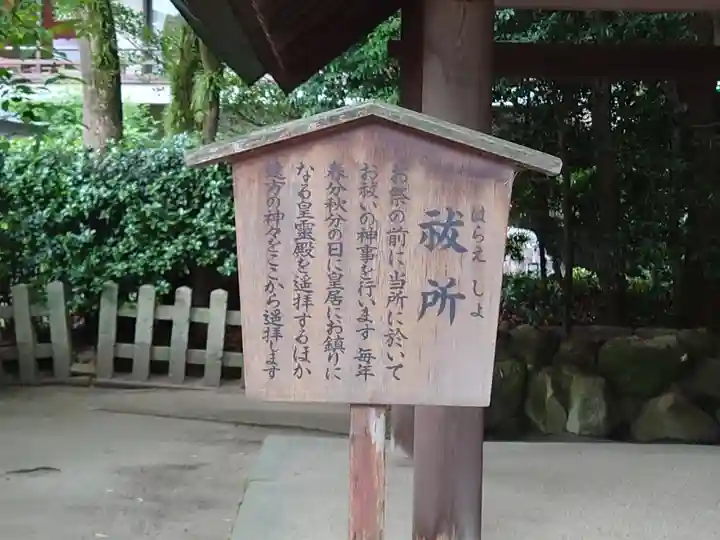 祓所
はらえ しよ
お祭の前に当所に於いて
お祓いの神事を行います 毎年
春分秋分の日に皇居にお鎮りに
なる皇靈殿を遥拝するほか
遠方の神々をここから遥拝します